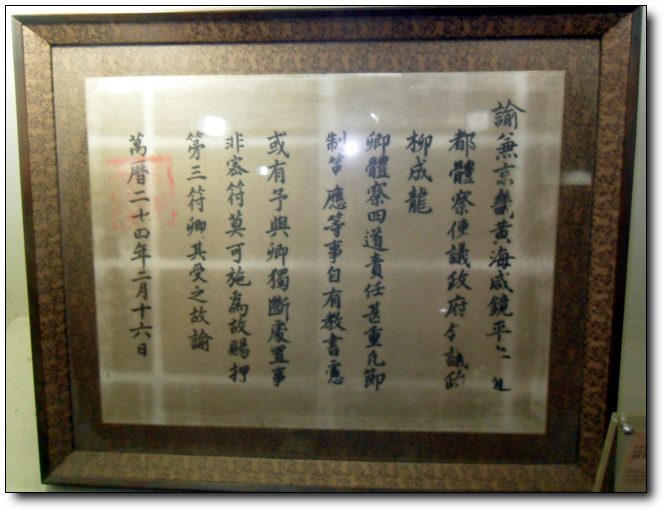 諭兼京畿黃海咸鏡平安道
都體察使議政府領議政
柳成龍
卿體察四道責任甚重凡節
制策應等事自有教書
或有予與卿獨斷處置事
非密符莫可施爲故賜押
第三符卿其受之故諭
萬曆二十四年二月十六日